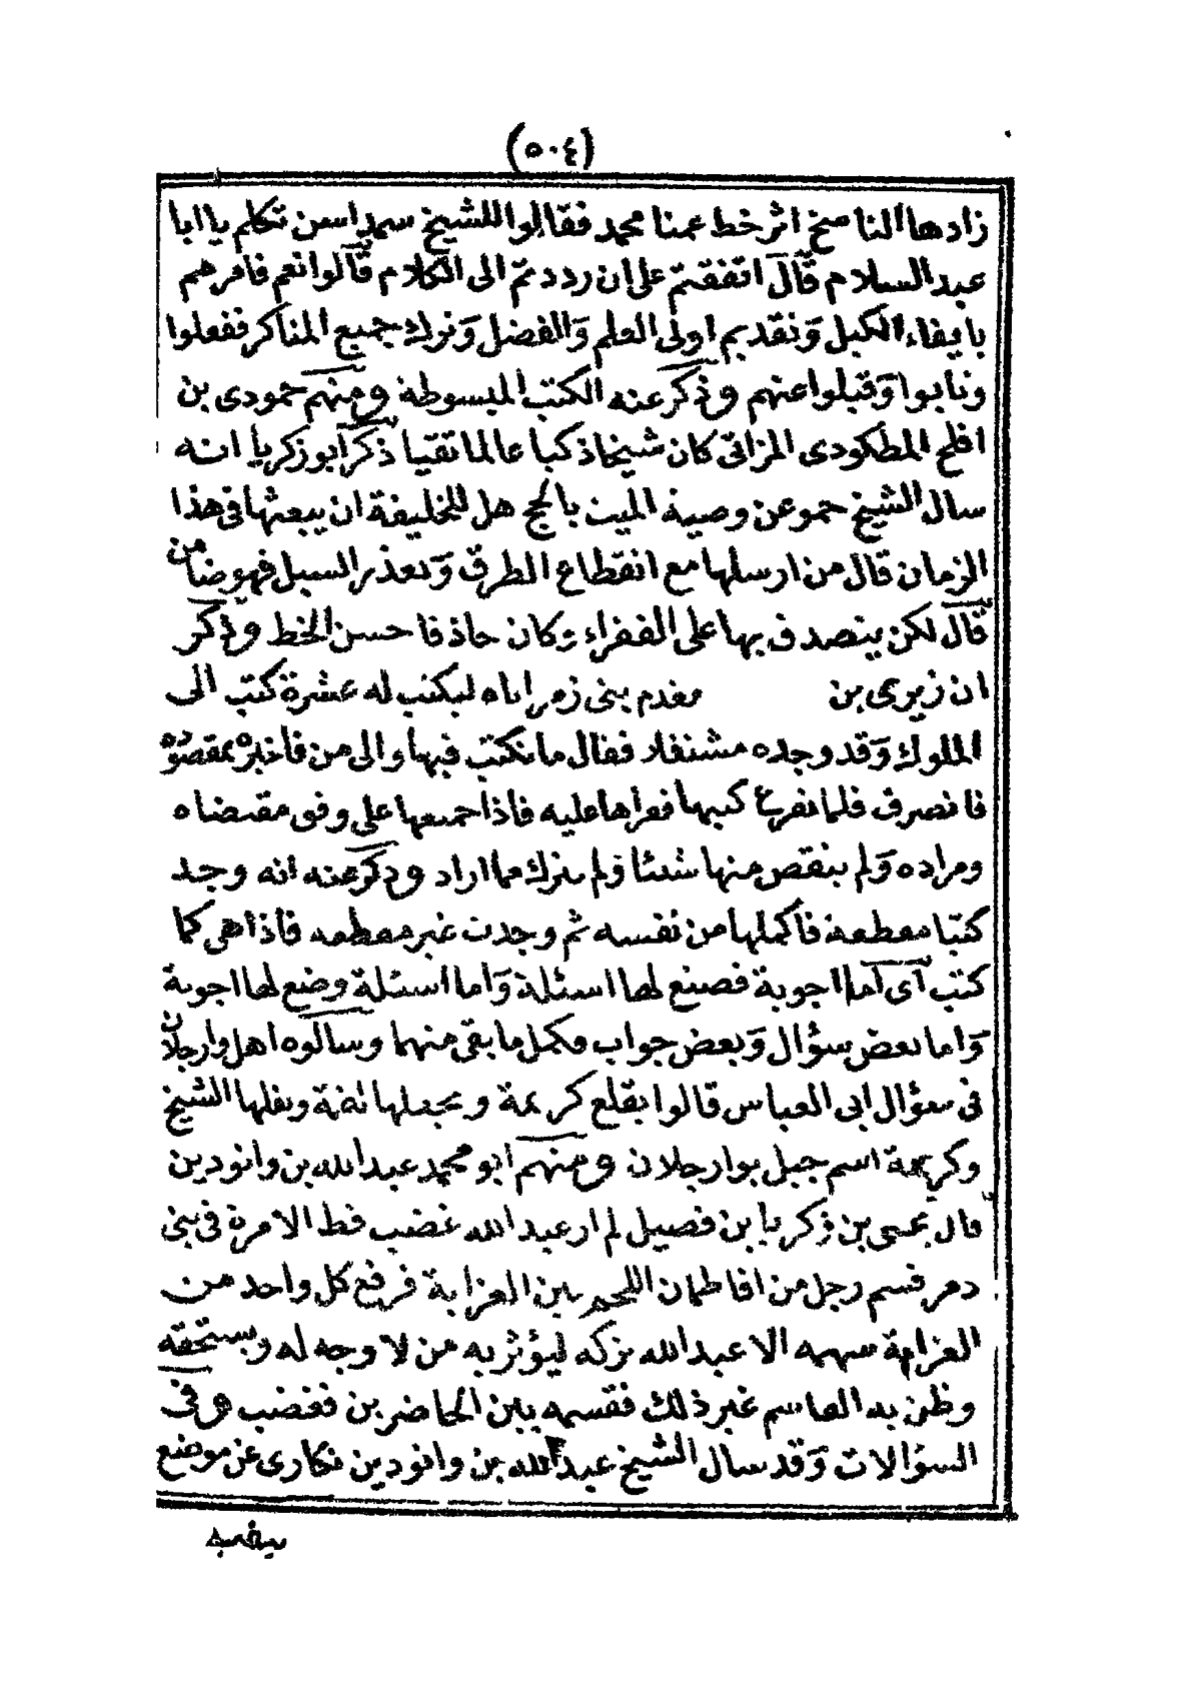 (٥٠٤)
زادها الناسخ اثر خط عمنا محمد فقالوا للشيخ سمداسن تكلم يا ابا
عبد السلام قال اتفقتم على ان رددتم الى الكلام قالوا نعم فامرهم
بايفاء الكيل وتقديم اولى العلم والفضل وترك جميع المناكر ففعلوا
وتابوا وقبلوا عنهم وذكر عنه الكتب المبسوطة ومنهم حمودى بن
افلح المطكودى المزاتى كان شيخا ذكيا عالما تقيا ذكر ابو زكريا انه
سال الشيخ حمو عن وصية الميت بالحج هل للخليفة ان يبعثها فى هذا
الزمان قال من ارسلها مع انقطاع الطرق وتعذر السبل فهو ضامن
قال لكن يتصدق بها على الفقراء وكان حاذقا حسن الخط وذكر
ان زيرى بن مقدم بنى زمراناه ليكتب له عشرة كتب الى
الملوك وقد وجده مشتغلا فقال ما نكتب فيها والى من فاخبره بمقصوده
فانصرف فلما تفرغ كتبها فقراها عليه فاذا جميعها على وفق مقتضاه
ومراده ولم ينقص منها شيئا ولم يترك مما اراد وذكر عنه انه وجد
كتبا مقطعة فاكملها من نفسه ثم وجدت غير مقطعه فاذا هى كما
كتب اى اما اجوبة فصنع لها اسئلة واما اسئلة وضع لها اجوبة
واما بعض سؤال وبعض جواب فكمل ما بقى منهما وسالوه اهل وارجلان
فى سؤال ابى العباس قالوا بقلع كريمة ويجعلها لقمة وبقلها الشيخ
وكريمة اسم جبل بوارجلان ومنهم ابو محمد عبد الله بن وانودين
قال يحيى بن زكريا بن فصيل لم ار عبد الله غضب قط الا مرة فى بنى
دمر قسم رجل من افاطمان اللحم بين العزابة فرفع كل واحد من
العزابة سهمه الا عبد الله تركه ليؤثر به من لا وجه له ويستحقه
وظن به القاسم غير ذلك فقسمه بين الحاضرين فغضب هو فى
السؤالات وقد سال الشيخ عبد الله بن وانودين نكارى عن موضع